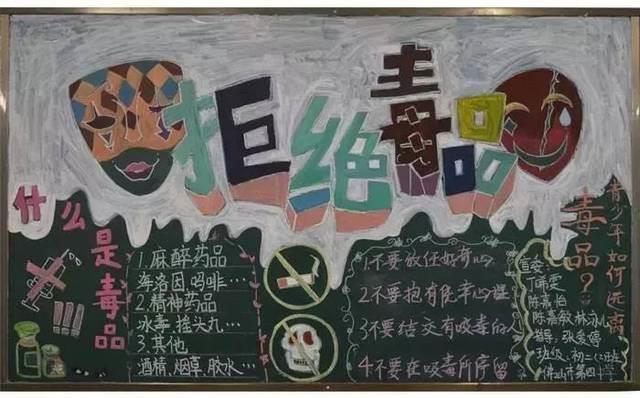 拒绝毒品
什么是毒品
1.麻醉药品
海洛因.吗啡…
2.精神药品
冰毒.摇头丸…
3.其他
酒精.烟草.胶水…
1不要放任好奇心
2不要抱有侥幸心理
3不要结交有吸毒的人
4不要在吸毒所停留
青少年如何远离
毒品?
陈嘉怡
指导:张爱婷
班级:初二(2)班
佛山市第四中学